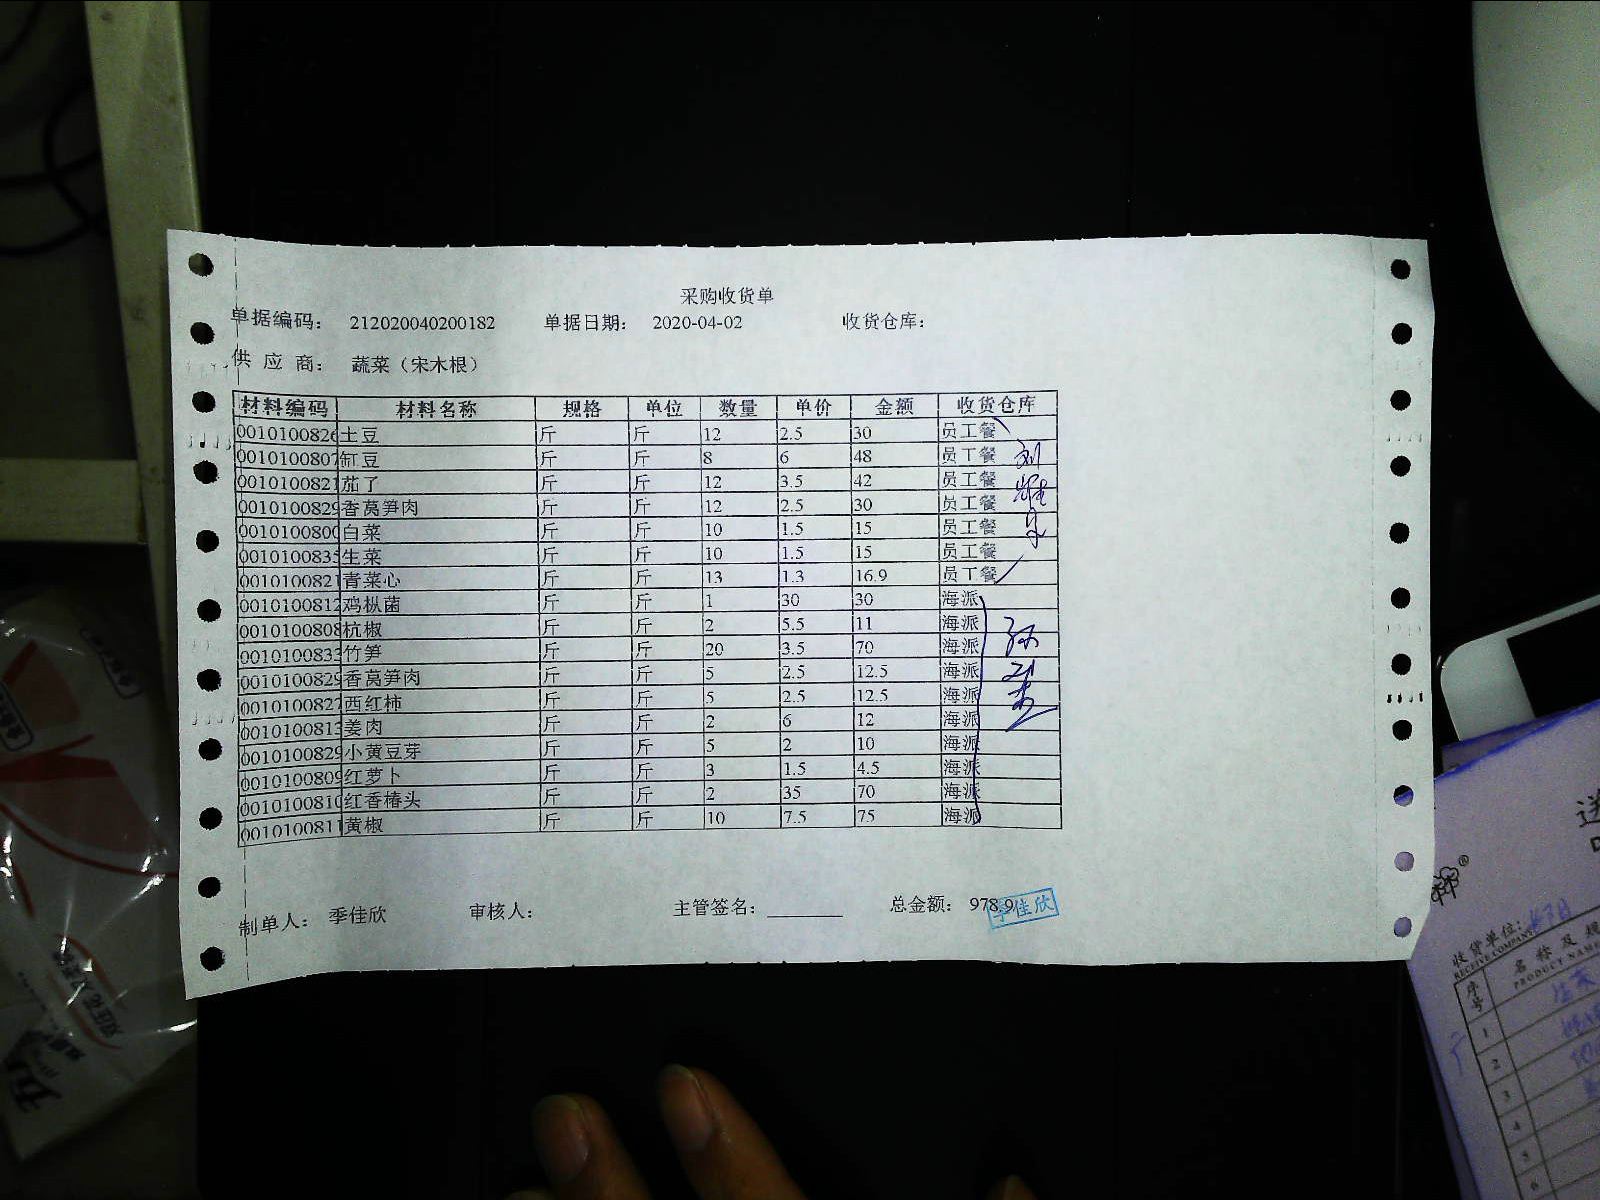 采购收货单
单据编码： 212020040200182 单据日期： 2020-04-02 收货仓库：
供 应 商： 蔬菜（宋木根）
材料编码 材料名称 规格 单位 数量 单价 金额 收货仓库
0010100826 土豆 斤 斤 12 2.5 30 员工餐
0010100807 缸豆 斤 斤 8 6 48 员工餐
0010100821 茄了 斤 斤 12 3.5 42 员工餐
0010100829 香莴笋肉 斤 斤 12 2.5 30 员工餐
0010100800 白菜 斤 斤 10 1.5 15 员工餐
001010083 生菜 斤 斤 10 1.5 15 员工餐
0010100821 青菜心 斤 斤 13 1.3 16.9 员工餐
0010100812 鸡枞菌 斤 斤 1 30 30 海派
0010100808 杭椒 斤 斤 2 5.5 11 海派
0010100833 竹笋 斤 斤 20 3.5 70 海派
0010100829 香莴笋肉 斤 斤 5 2.5 12.5 海派
0010100827 西红柿 斤 斤 5 2.5 12.5 海派
0010100813 姜肉 斤 斤 2 6 12 海派
0010100829 小黄豆芽 斤 斤 5 2 10 海派
0010100809 红萝卜 斤 斤 3 1.5 4.5 海派
0010100810 红香椿头 斤 斤 2 35 70 海派
0010100811 黄椒 斤 斤 10 7.5 75 海派
制单人： 季佳欣 审核人： 主管签名： 总金额： 978.9
季佳欣
收货单位：
RECEIVE COMPANY
序号 名 称 及 规
PRODUCT NAME
1
2
3
4
5
6